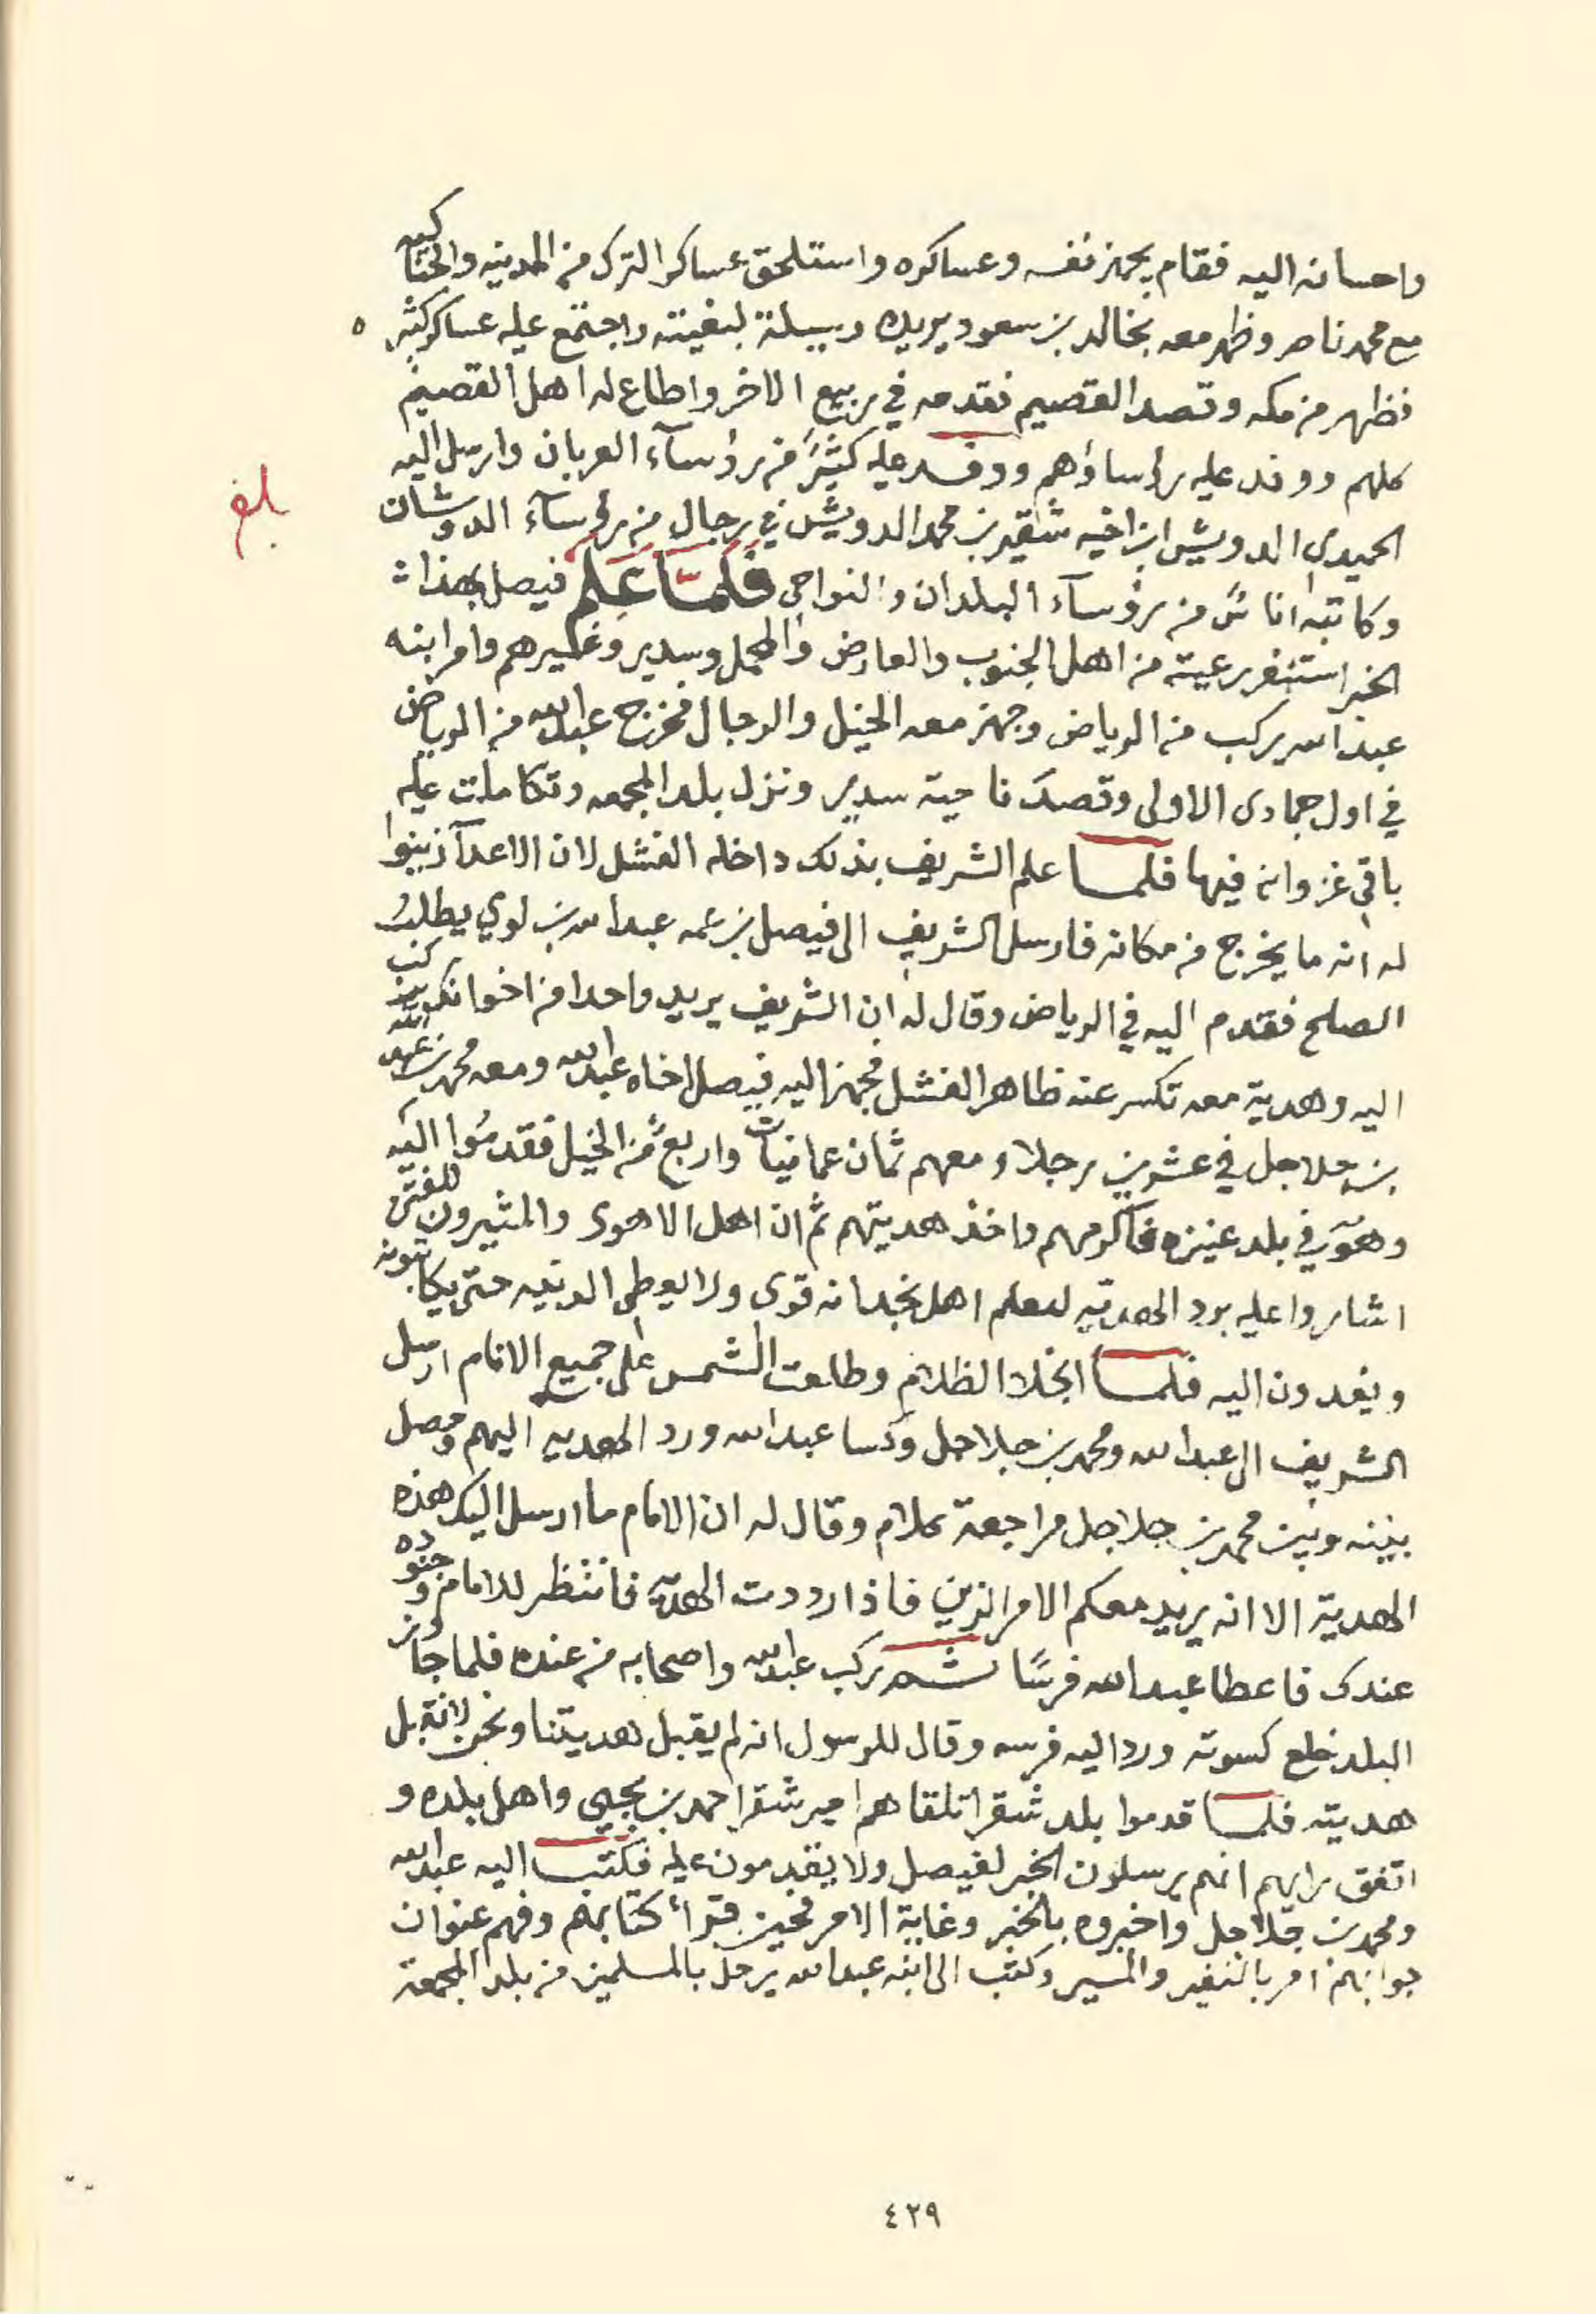 واحسانه اليه فقام يجهز نفسه وعساكره واستلحق عساكر الترك من المدينه والحناكيه
مع محمد ناصر وظهر معه بخالد بن سعود يريده وسيلة لبغيته واجتمع عليه عساكر كثيره
فظهر من مكه وقصد القصيم فقدمه في ربيع الاخر واطاع له اهل القصيم
كلهم ووفد عليه رؤساؤهم ووفد عليه كثيرٌ من رؤسآء العربان وارسل اليه
الحميدي الدويش ابن اخيه شقير بن محمد الدويش في رجال من رؤسآء الدوشان
بلغ
وكاتبه اناسٌ من رؤسآء البلدان والنواحي فلمّا علم فيصل بهذا
الخبر استنفر رعيته من اهل الجنوب والعارض والمحمل وسدير وغيرهم وامر ابنه
عبدالله يركب من الرياض وجهز معه الخيل والرجال فخرج عبدالله من الرياض
في اول جمادى الاولى وقصد ناحية سدير ونزل بلد المجمعه وتكاملت عليه
باقي غزوانه فيها فلما علم الشريف بذلك داخله الفشل لان الاعدآ زينوا
له انه ما يخرج من مكانه فارسل الشريف الى فيصل بن عمه عبدالله بن لوي يطلب
الصلح فقدم اليه في الرياض وقال له ان الشريف يريد واحدا من اخوانك يركب
اليه وهدية معه تكسر عنه ظاهر الفشل فجهز اليه فيصل اخاه عبدالله ومعه محمد بن عبدالله
بن جلاجل في عشرين رجلا ومعهم ثمان عمانيات واربعٌ من الخيل فقدموا اليه
وهو في بلد عنيزه فاكرمهم واخذ هديتهم ثم ان اهل الاهوى والمثيرون للفتن
اشاروا عليه برد الهديه ليعلم اهل نجد انه قوى ولا يعطى الدنيه حتى يكاتبونه
ويفدون اليه فلما انجلا الظلام وطلعت الشمس على جميع الانام ارسل
الشريف الى عبدالله ومحمد بن جلاجل وكسا عبدالله ورد الهديه اليهم وحصل
بينه وبين محمد بن جلاجل مراجعة كلام وقال له ان الامام ما ارسل اليك هذه
الهدية الا انه يريد معكم الامر الزين فاذا رددت الهديه فانتظر للامام وجنوده
عندك فاعطا عبدالله فرسًا ثم ركب عبدالله واصحابه من عنده فلما جاوز
البلد خلع كسوته ورد اليه فرسه وقال للرسول انه لم يقبل هديتنا ونحن لا نقبل
هديته فلما قدموا بلد شقرا تلقاهم امير شقرا حمد بن يحيى واهل بلده و
اتفق رايهم انهم يرسلون الخبر لفيصل ولا يقدمون عليه فكتب اليه عبدالله
ومحمد بن جلاجل واخبروه بالخبر وغاية الامر فحين قرأ كتابهم وفهم عنوان
جوابهم امر بالنفير والمسير وكتب الى ابنه عبدالله يرحل بالمسلمين من بلد المجمعة
٤٢٩